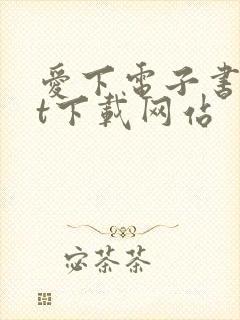 愛下電子書
t下載网站
宓茶茶